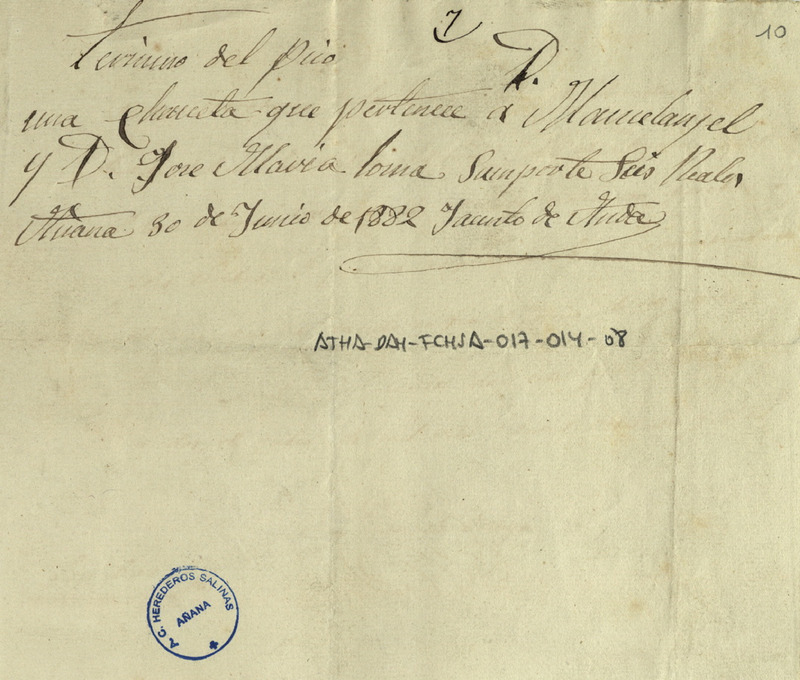 7
10
termino del pico
D.
una chanela que pertenece á Manuelanjel
y D. Jose Maria loma Sumporte Seis Reales
Añana 30 de Junio de 1882 Jacinto de Anda
ATHA-DAH-FCHSA-017-014-08
A. C. HEREDEROS SALINAS
AÑANA